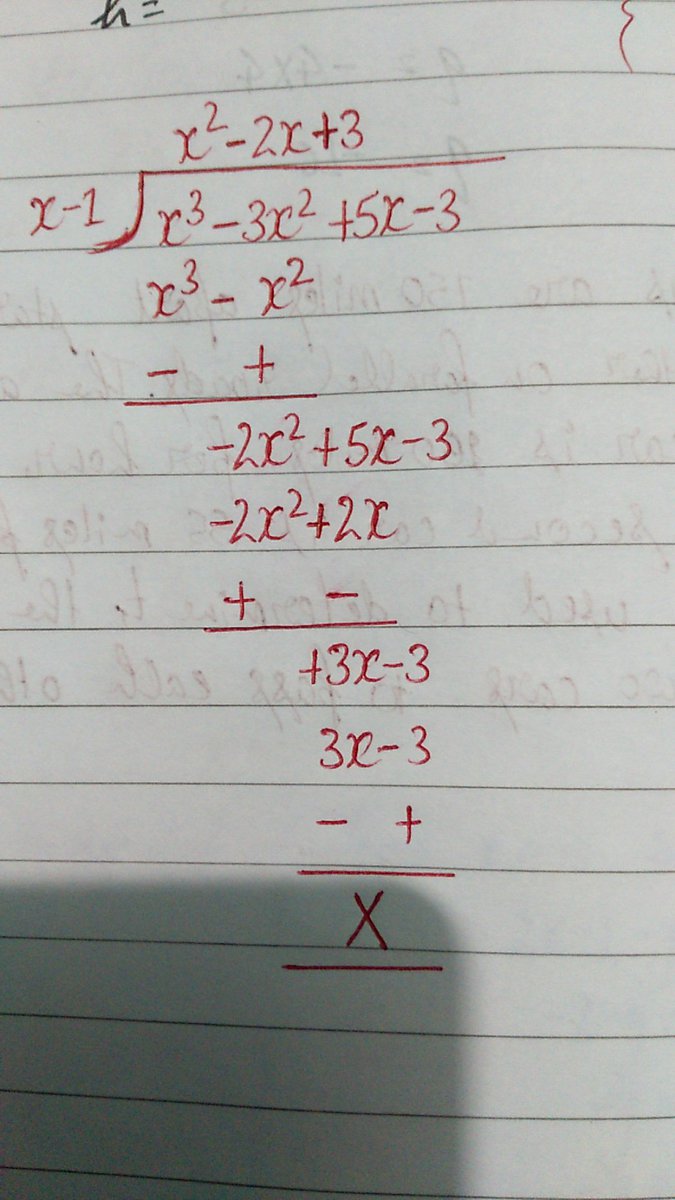 h=
x²-2x+3
x-1 x³-3x²+5x-3
x³-x²
- +
-2x²+5x-3
-2x²+2x
+ -
+3x-3
3x-3
- +
X